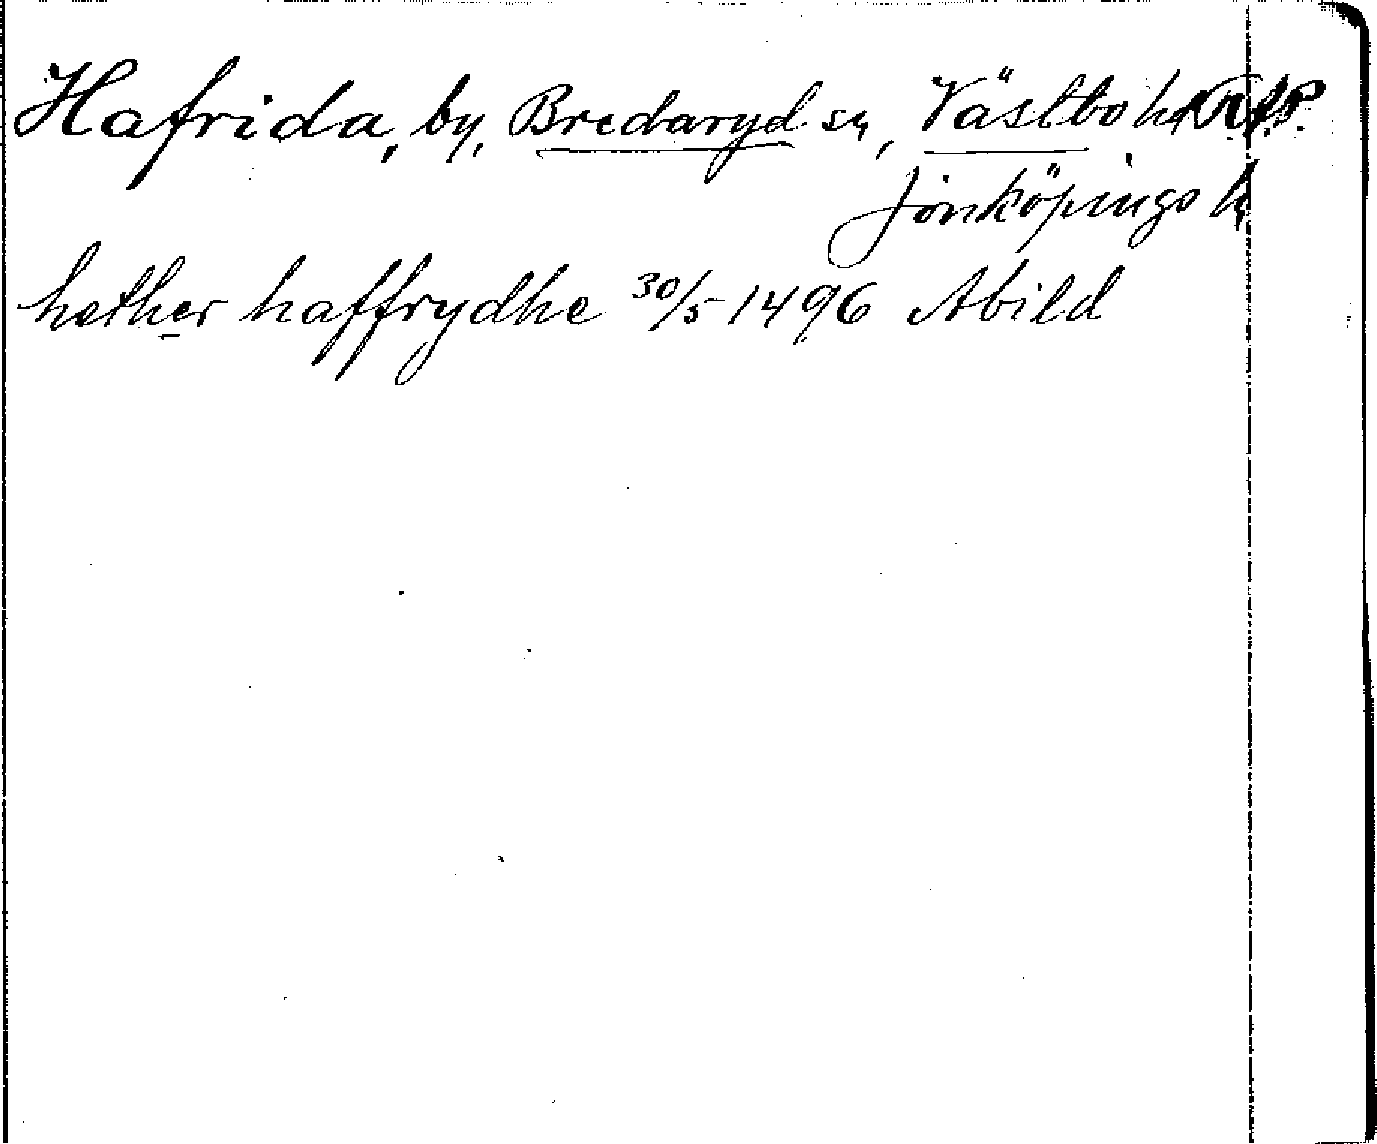 Hafrida, by, Bredaryd sn, Västbo hd
Jönköpings l.
hether haffrydhe 30/5 1496 Abild